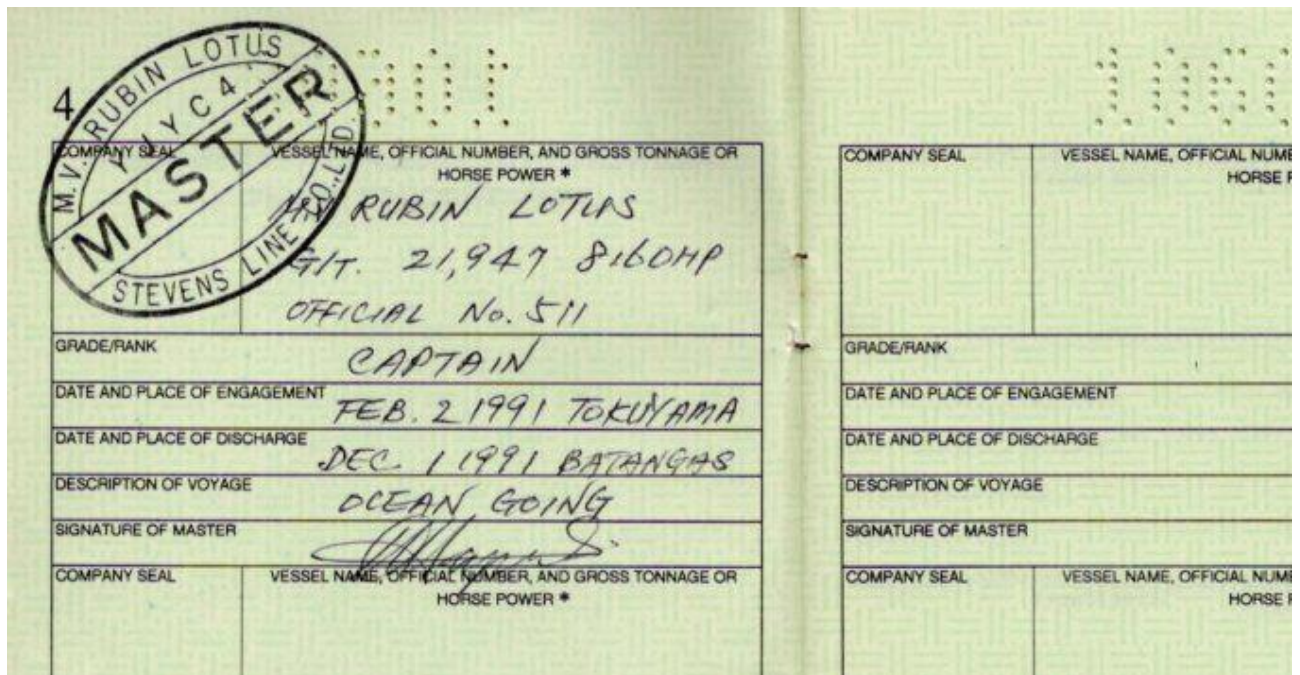 4
M.V. RUBIN LOTUS
YJYC4
MASTER
STEVENS LINE CO., LTD.
COMPANY SEAL
VESSEL NAME, OFFICIAL NUMBER, AND GROSS TONNAGE OR
HORSE POWER *
RUBIN LOTUS
G/T. 21,947 8160HP
OFFICIAL No. 511
GRADE/RANK
CAPTAIN
DATE AND PLACE OF ENGAGEMENT
FEB. 2 1991 TOKUYAMA
DATE AND PLACE OF DISCHARGE
DEC. 1 1991 BATANGAS
DESCRIPTION OF VOYAGE
OCEAN GOING
SIGNATURE OF MASTER
COMPANY SEAL
VESSEL NAME, OFFICIAL NUMBER, AND GROSS TONNAGE OR
HORSE POWER *
COMPANY SEAL
VESSEL NAME, OFFICIAL NUMBE
HORSE P
GRADE/RANK
DATE AND PLACE OF ENGAGEMENT
DATE AND PLACE OF DISCHARGE
DESCRIPTION OF VOYAGE
SIGNATURE OF MASTER
COMPANY SEAL
VESSEL NAME, OFFICIAL NUMBE
HORSE P